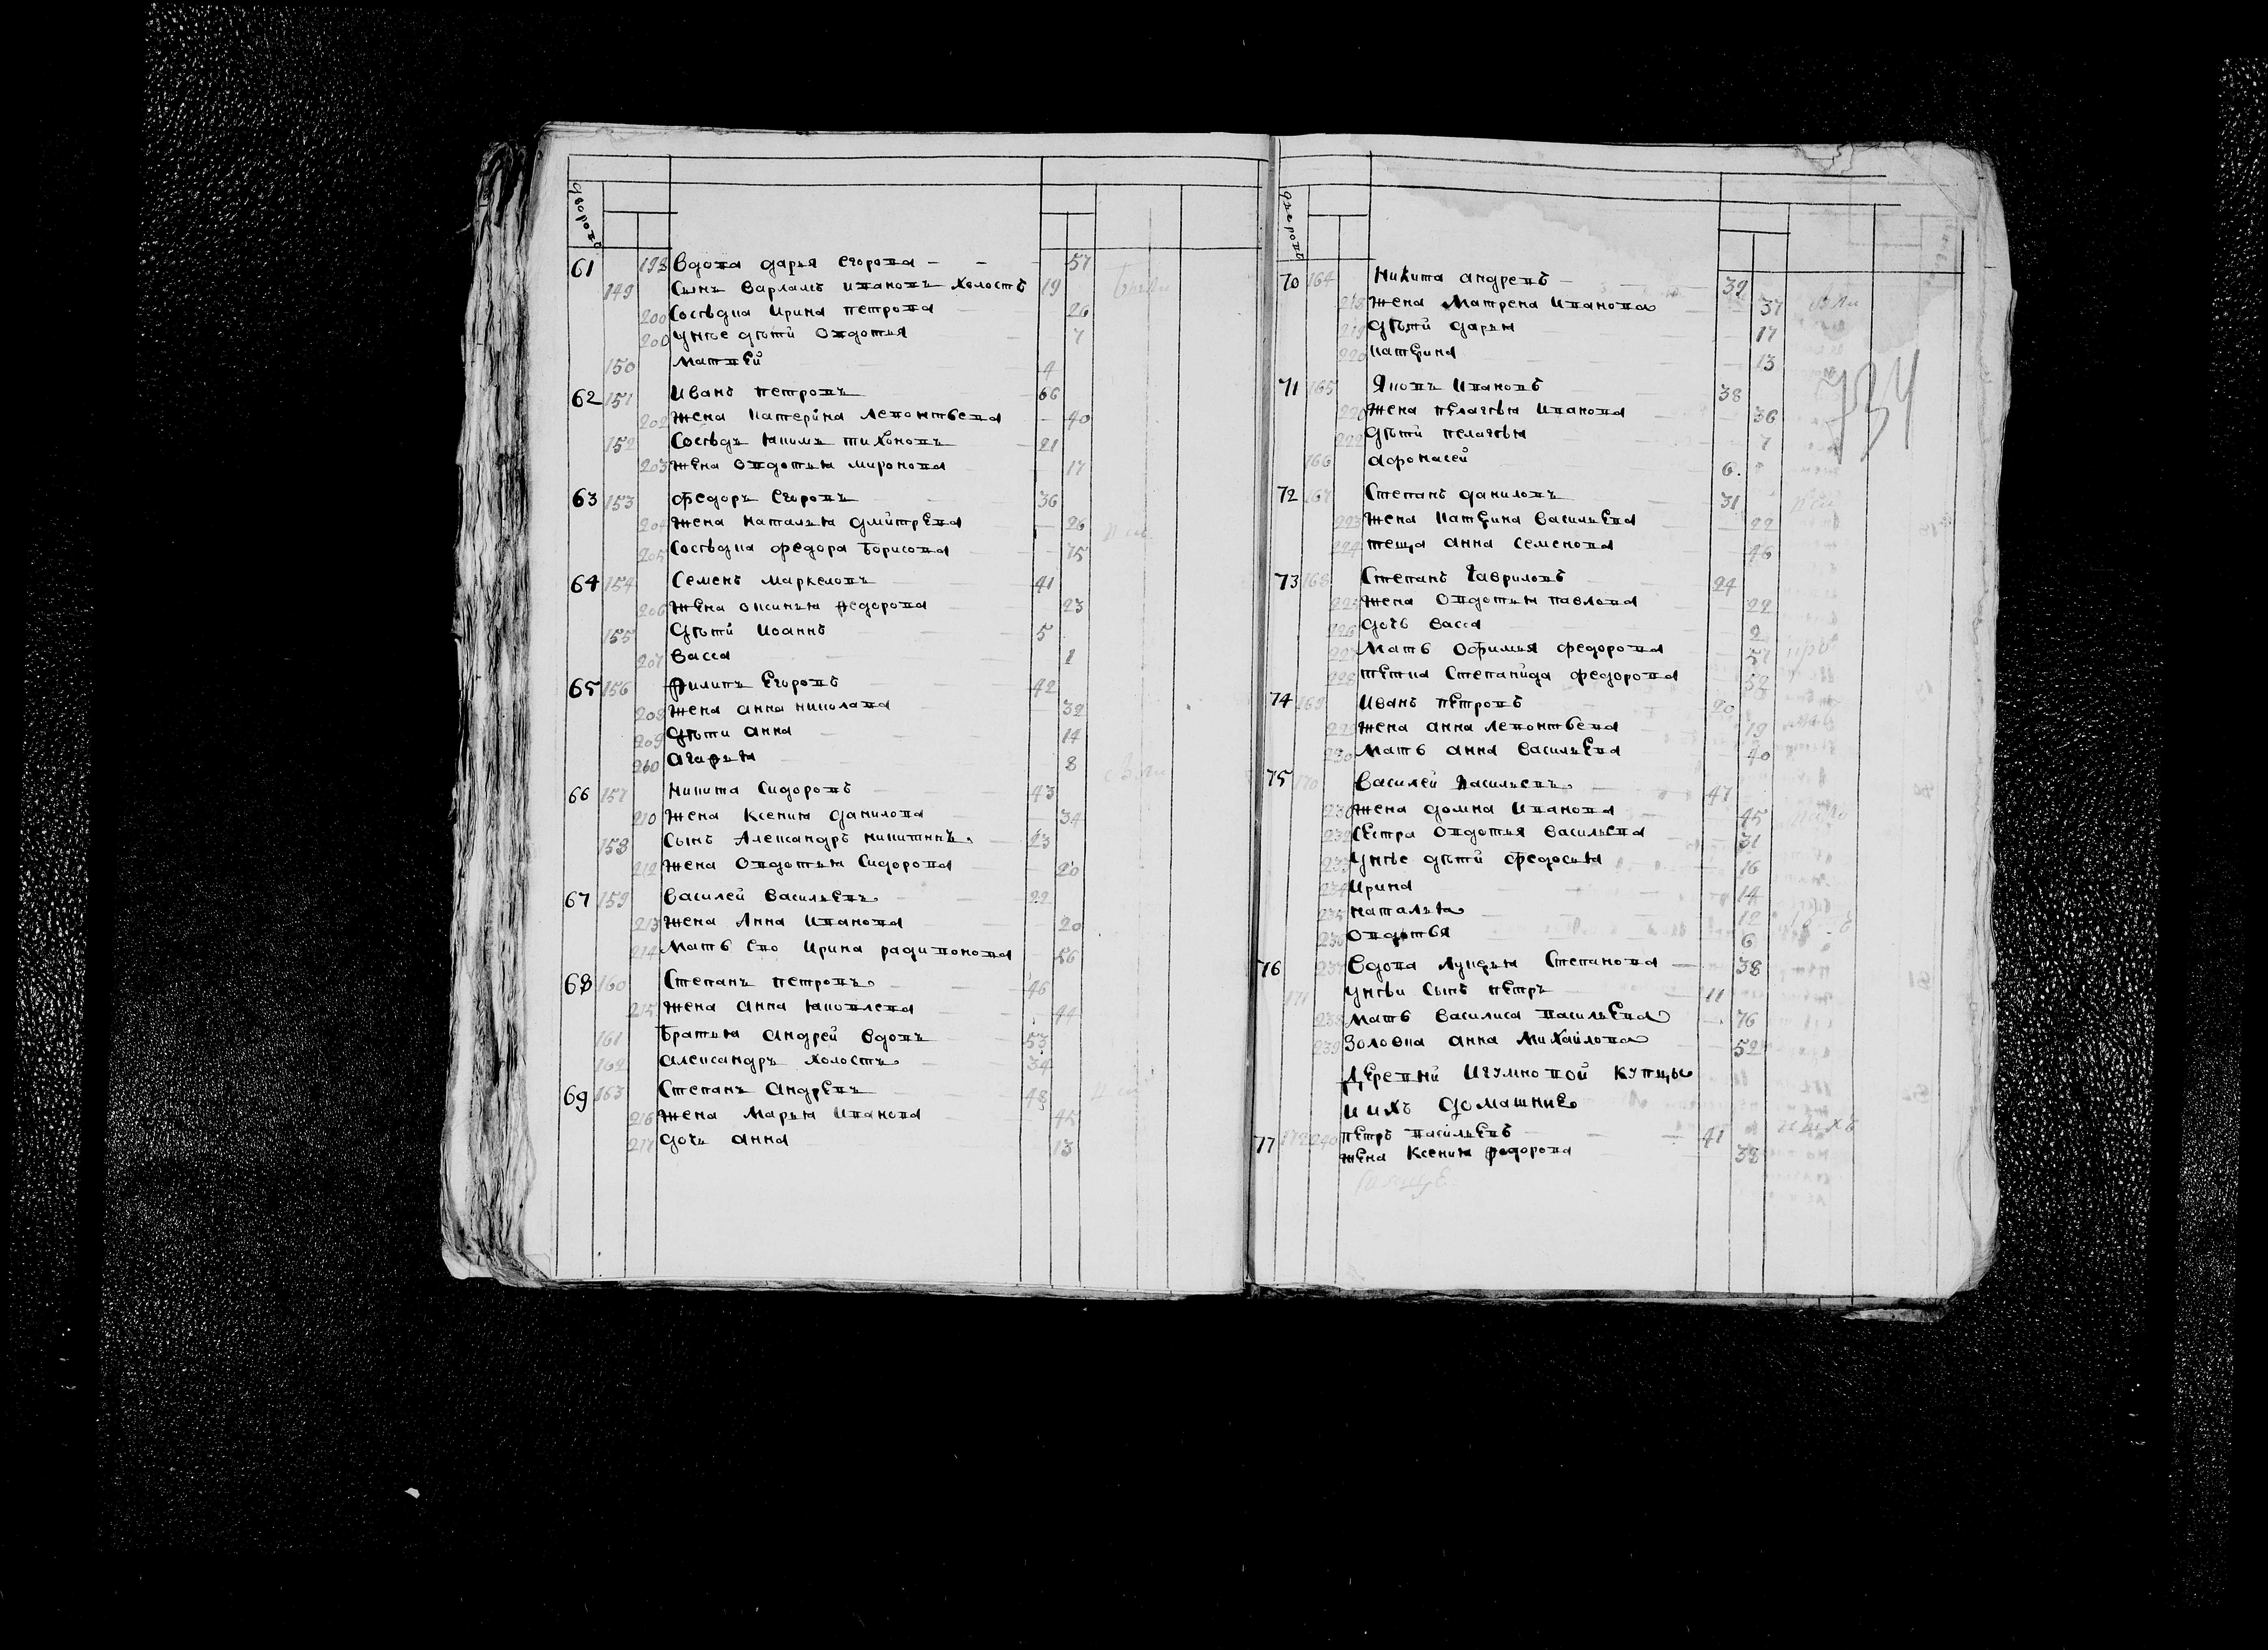 дворовъ
61 198 Вдова дарья егорова 57
149 Сынъ Варламъ ивановъ холостъ 19
200 Соседка Ирина петрова 26
200 унее дѣти Овдотья 7
150 Матвей 4
62 151 Иванъ петровъ 66
202 жена катерина леонтьева 40
152 Соседъ якимъ тихоновъ 21
203 жена овдотья миронова 17
63 153 федоръ егоровъ 36
204 жена наталья дмитрева 26
205 Соседка федора борисова 75
64 154 Семенъ маркеловъ 41
206 жена оксинья федорова 23
155 дѣти Иоаннъ 5
207 васса 1
65 156 филипъ егоровъ 42
208 жена анна николава 32
209 дѣти анна 14
260 агафья 8
66 157 никита Сидоровъ 43
210 жена Ксения данилова 34
158 Сынъ Александръ никитинъ 23
212 жена Овдотья Сидорова 20
67 159 василей васильевъ 22
213 жена Анна Иванова 20
214 Мать ево Ирина радивонова 56
68 160 Степанъ петровъ 46
215 жена Анна яковлева 44
161 братья Андрей вдовъ 53
162 александръ холостъ 34
69 163 Степанъ Андревъ 48
216 жена Марья Иванова 45
217 дочь анна 13
дворовъ
70 164 Никита андревъ 39
218 жена Матрена Иванова 37
219 дѣти дарья 17
220 катерина 13
71 165 Яковъ Ивановъ 38
220 жена пелагея Иванова 36
222 дѣти пелагея 7
166 афонасей 6
72 167 Степанъ даниловъ 31
223 жена катерина Васильева 22
224 теща анна семенова 46
73 168 Степанъ Гавриловъ 24
225 жена Овдотья павлова 22
226 дочь васса 2
227 Мать Офимья федорова 57
228 тетка Степанида федорова 58
74 169 Иванъ петровъ 20
229 жена анна леонтьева 19
230 мать анна васильева 40
75 170 василей васильевъ 47
230 жена домна Иванова 45
232 сестра Овдотья васильева 31
233 унее дѣти федосья 16
234 Ирина 14
235 наталья 12
236 овдотья 6
76 237 вдова лукерья Степанова 38
171 унеи сынъ петръ 11
238 мать василиса васильева 76
239 золовка анна Михайлова 52
Деревни Игумновой купцы
и ихъ домашние
77 172 240 петръ васильевъ 41
жена Ксения федорова 38
734